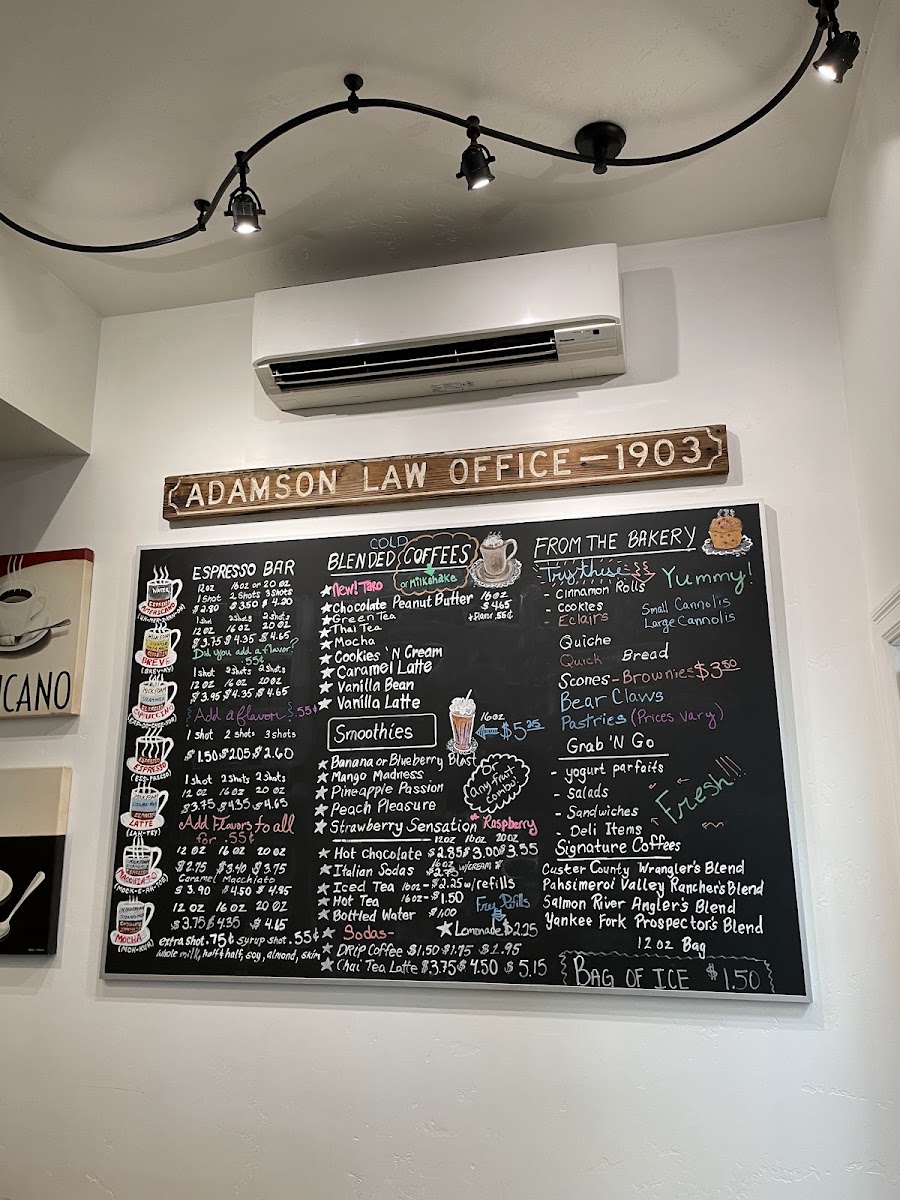 ADAMSON LAW OFFICE — 1903
CANO
ESPRESSO BAR
12oz 16oz or 20oz
1 Shot 2 Shots 3 Shots
$2.80 $3.50 $4.20
WATER
ESPRESSO
AMERICANO
1 Shot 2 Shots 3 Shots
12 OZ 16 OZ 20 OZ
$3.75 $4.35 $4.65
Did you add a flavor?
.55¢
BREVE
(BREV-AY)
1 shot 2 shots 3 shots
12 OZ 16 OZ 20 OZ
$3.95 $4.35 $4.65
{Add a flavor}.55¢
MILK FOAM
CAPUCCINO
1 shot 2 shots 3 shots
$1.50 $2.05 $2.60
ESPRESSO
(ESS-PRESSO)
1 shot 2 shots 3 shots
12 OZ 16 OZ 20 OZ
$3.75 $4.35 $4.65
Add Flavors to all
for .55¢
LATTE
(LAH-TEY)
12 OZ 16 OZ 20 OZ
$2.75 $3.40 $3.75
Caramel Macchiato
$3.90 $4.50 $4.95
MACCHIATO
(MOCK-E-AH-TOE)
12 OZ 16 OZ 20 OZ
$3.75 $4.35 $4.65
MOCHA
(MOH-KUH)
extra shot .75¢ syrup shot .55¢
whole milk, half & half, soy, almond, skim
COLD
BLENDED COFFEES
or milkshake
New! Taro
Chocolate Peanut Butter
16oz
$4.65
+Flavor .55¢
Green Tea
Thai Tea
Mocha
Cookies 'N Cream
Caramel Latte
Vanilla Bean
Vanilla Latte
Smoothies
16oz
$5.25
Banana or Blueberry Blast
Mango Madness
Pineapple Passion
Peach Pleasure
Strawberry Sensation Raspberry
or any fruit combo!
12oz 16oz 20oz
Hot Chocolate $2.85 $3.00 $3.55
Italian Sodas 16oz $2.75 w/CREAM
Iced Tea 16oz - $2.25 w/refills
Hot Tea 16oz - $1.50
Free Refills
Bottled Water $1.00
Sodas-
Lemonade $2.25
Drip Coffee $1.50 $1.75 $1.95
Chai Tea Latte $3.75 $4.50 $5.15
FROM THE BAKERY
Try this:
Yummy!
- Cinnamon Rolls
- Cookies
- Eclairs
Small Cannolis
Large Cannolis
Quiche
Quick Bread
Scones - Brownies $3.50
Bear Claws
Pastries (Prices vary)
Grab 'N Go
- yogurt parfaits
- Salads
- Sandwiches
- Deli Items
Fresh!!!
Signature Coffees
Custer County Wrangler's Blend
Pahsimeroi Valley Rancher's Blend
Salmon River Angler's Blend
Yankee Fork Prospector's Blend
12 oz Bag
BAG OF ICE $1.50